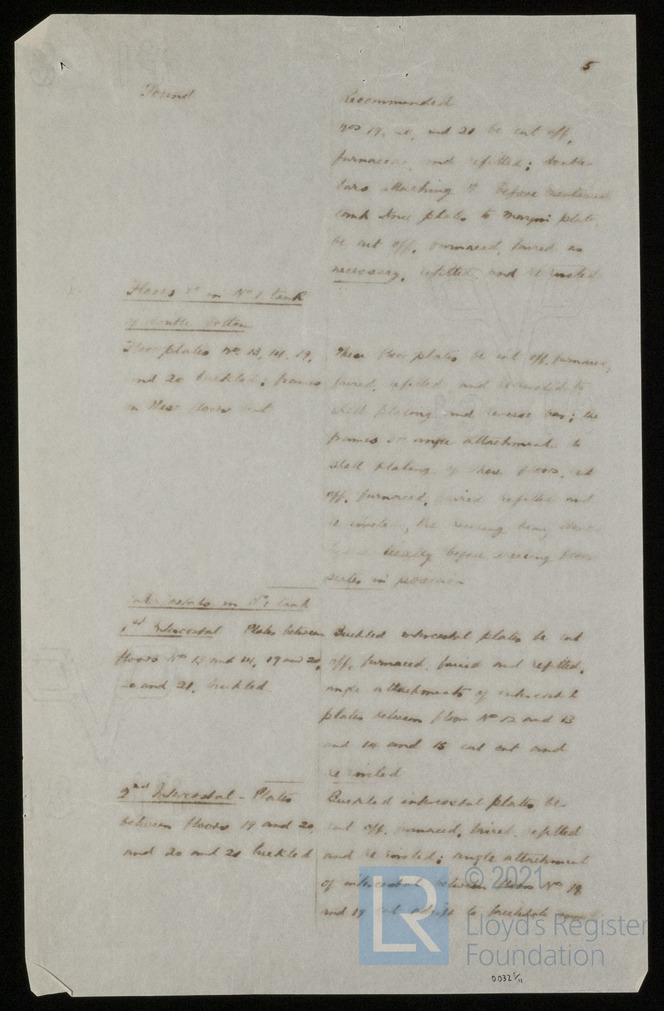 5
Found
Recommended
Nos 19, 20, and 21 be cut off,
furnaced, and refitted; double
bars attaching to before mentioned
tank knee plates to margin plate
be cut off, furnaced, faired as
necessary, refitted and re riveted
Floors &c in No 1 tank
of double bottom
Floor plates Nos 13, 14, 19,
and 20 buckled; frames
in these floors bent
These floor plates be cut off, furnaced,
faired, refitted and re riveted to
shell plating and reverse bar; the
frames or angle attachment to
shell plating of these floors, cut
off, furnaced, faired refitted and
re riveted, the riveting being
before
plates in position
Intercostals in No 1 tank
1st Intercostal Plates between
floors No 13 and 14, 19 and 20,
20 and 21, buckled
Buckled intercostal plates be cut
off, furnaced, faired and refitted,
angle attachments of intercostal
plates between floor No 12 and 13
and 14 and 15 cut out and
re riveted
2nd Intercostal - Plates
between floors 19 and 20,
and 20 and 21 buckled
Buckled intercostal plates be
cut off, furnaced, faired, refitted
and re riveted; angle attachment
of intercostal between floors No 18
and 19 cut adrift to
© 2021
LR
Lloyd's Register
Foundation